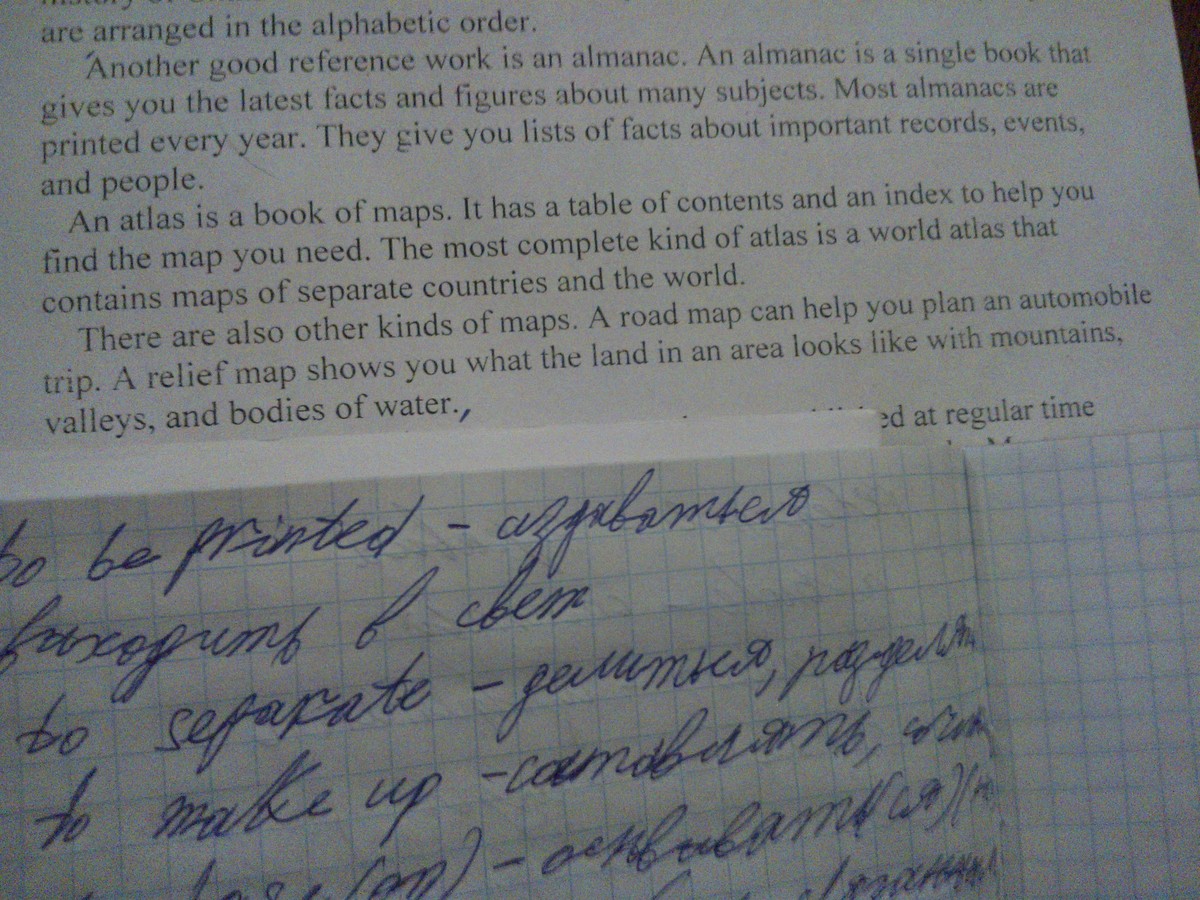 are arranged in the alphabetic order.
Another good reference work is an almanac. An almanac is a single book that
gives you the latest facts and figures about many subjects. Most almanacs are
printed every year. They give you lists of facts about important records, events,
and people.
An atlas is a book of maps. It has a table of contents and an index to help you
find the map you need. The most complete kind of atlas is a world atlas that
contains maps of separate countries and the world.
There are also other kinds of maps. A road map can help you plan an automobile
trip. A relief map shows you what the land in an area looks like with mountains,
valleys, and bodies of water.,
at regular time
to be printed - издаваться
выходить в свет
to separate - делиться,
to make up - составлять,